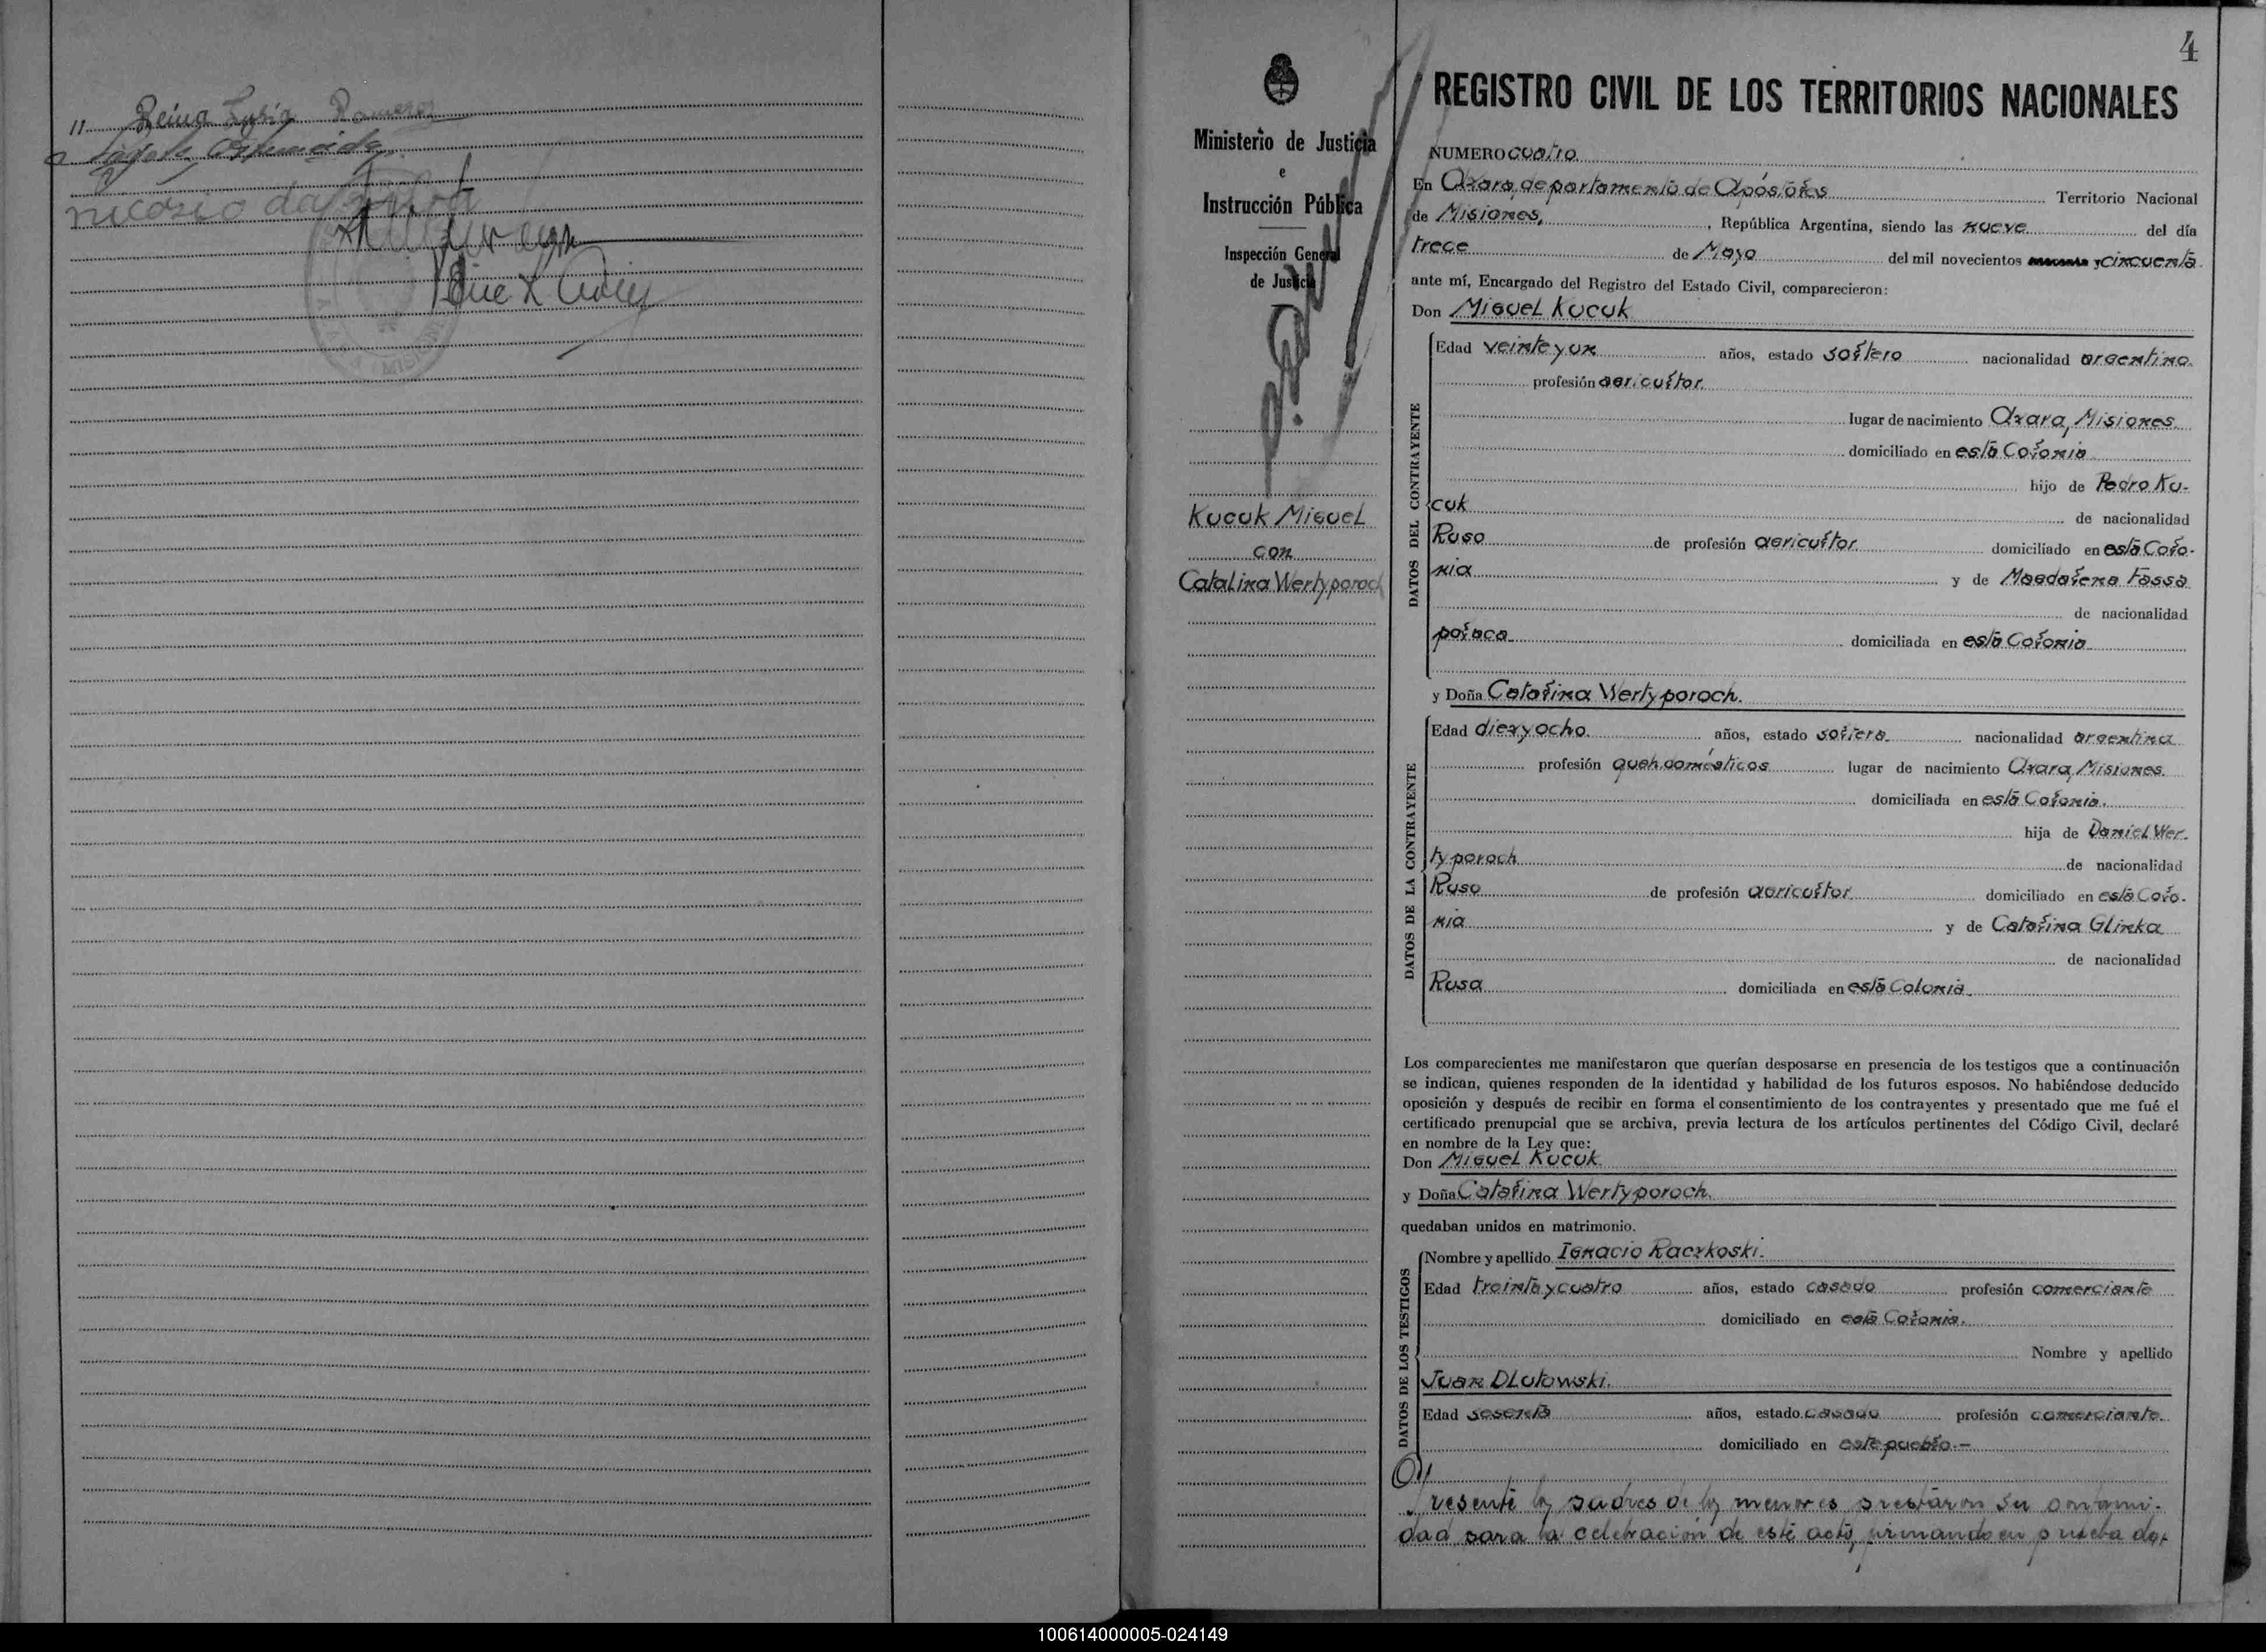 Reina
4
REGISTRO CIVIL DE LOS TERRITORIOS NACIONALES
Ministerio de Justicia
e
Instrucción Pública
Inspección General
de Justicia
Kucuk Miguel
con
Catalina Wertyporoch
NUMERO cuatro
En Azara, departamento de Apóstoles Territorio Nacional
de Misiones, , República Argentina, siendo las nueve del día
trece de Mayo del mil novecientos y cincuenta
ante mí, Encargado del Registro del Estado Civil, comparecieron:
Don Miguel Kucuk
DATOS DEL CONTRAYENTE
Edad veinte y un años, estado soltero nacionalidad argentino.
profesión agricultor
lugar de nacimiento Azara, Misiones.
domiciliado en esta Colonia
hijo de Pedro Ku-
cuk de nacionalidad
Ruso de profesión agricultor domiciliado en esta Colo-
nia y de Magdalena Fassa
de nacionalidad
polaca domiciliada en esta Colonia
y Doña Catalina Wertyporoch.
DATOS DE LA CONTRAYENTE
Edad diez y ocho. años, estado soltera nacionalidad argentina
profesión queh. domésticos lugar de nacimiento Azara, Misiones.
domiciliada en esta Colonia.
hija de Daniel Wer-
typoroch de nacionalidad
Ruso de profesión agricultor domiciliado en esta Colo-
nia y de Catalina Glinka
de nacionalidad
Rusa domiciliada en esta Colonia
Los comparecientes me manifestaron que querían desposarse en presencia de los testigos que a continuación
se indican, quienes responden de la identidad y habilidad de los futuros esposos. No habiéndose deducido
oposición y después de recibir en forma el consentimiento de los contrayentes y presentado que me fué el
certificado prenupcial que se archiva, previa lectura de los artículos pertinentes del Código Civil, declaré
en nombre de la Ley que:
Don Miguel Kucuk.
y Doña Catalina Wertyporoch.
quedaban unidos en matrimonio.
DATOS DE LOS TESTIGOS
Nombre y apellido Ignacio Raczkoski.
Edad treinta y cuatro años, estado casado profesión comerciante
domiciliado en esta Colonia.
Nombre y apellido
Juan Dlutowski.
Edad sesenta años, estado casado profesión comerciante.
domiciliado en este pueblo.-
Presente los padres de los menores prestaron su conformi-
dad para la celebración de este acto, firmando en prueba de
100614000005-024149